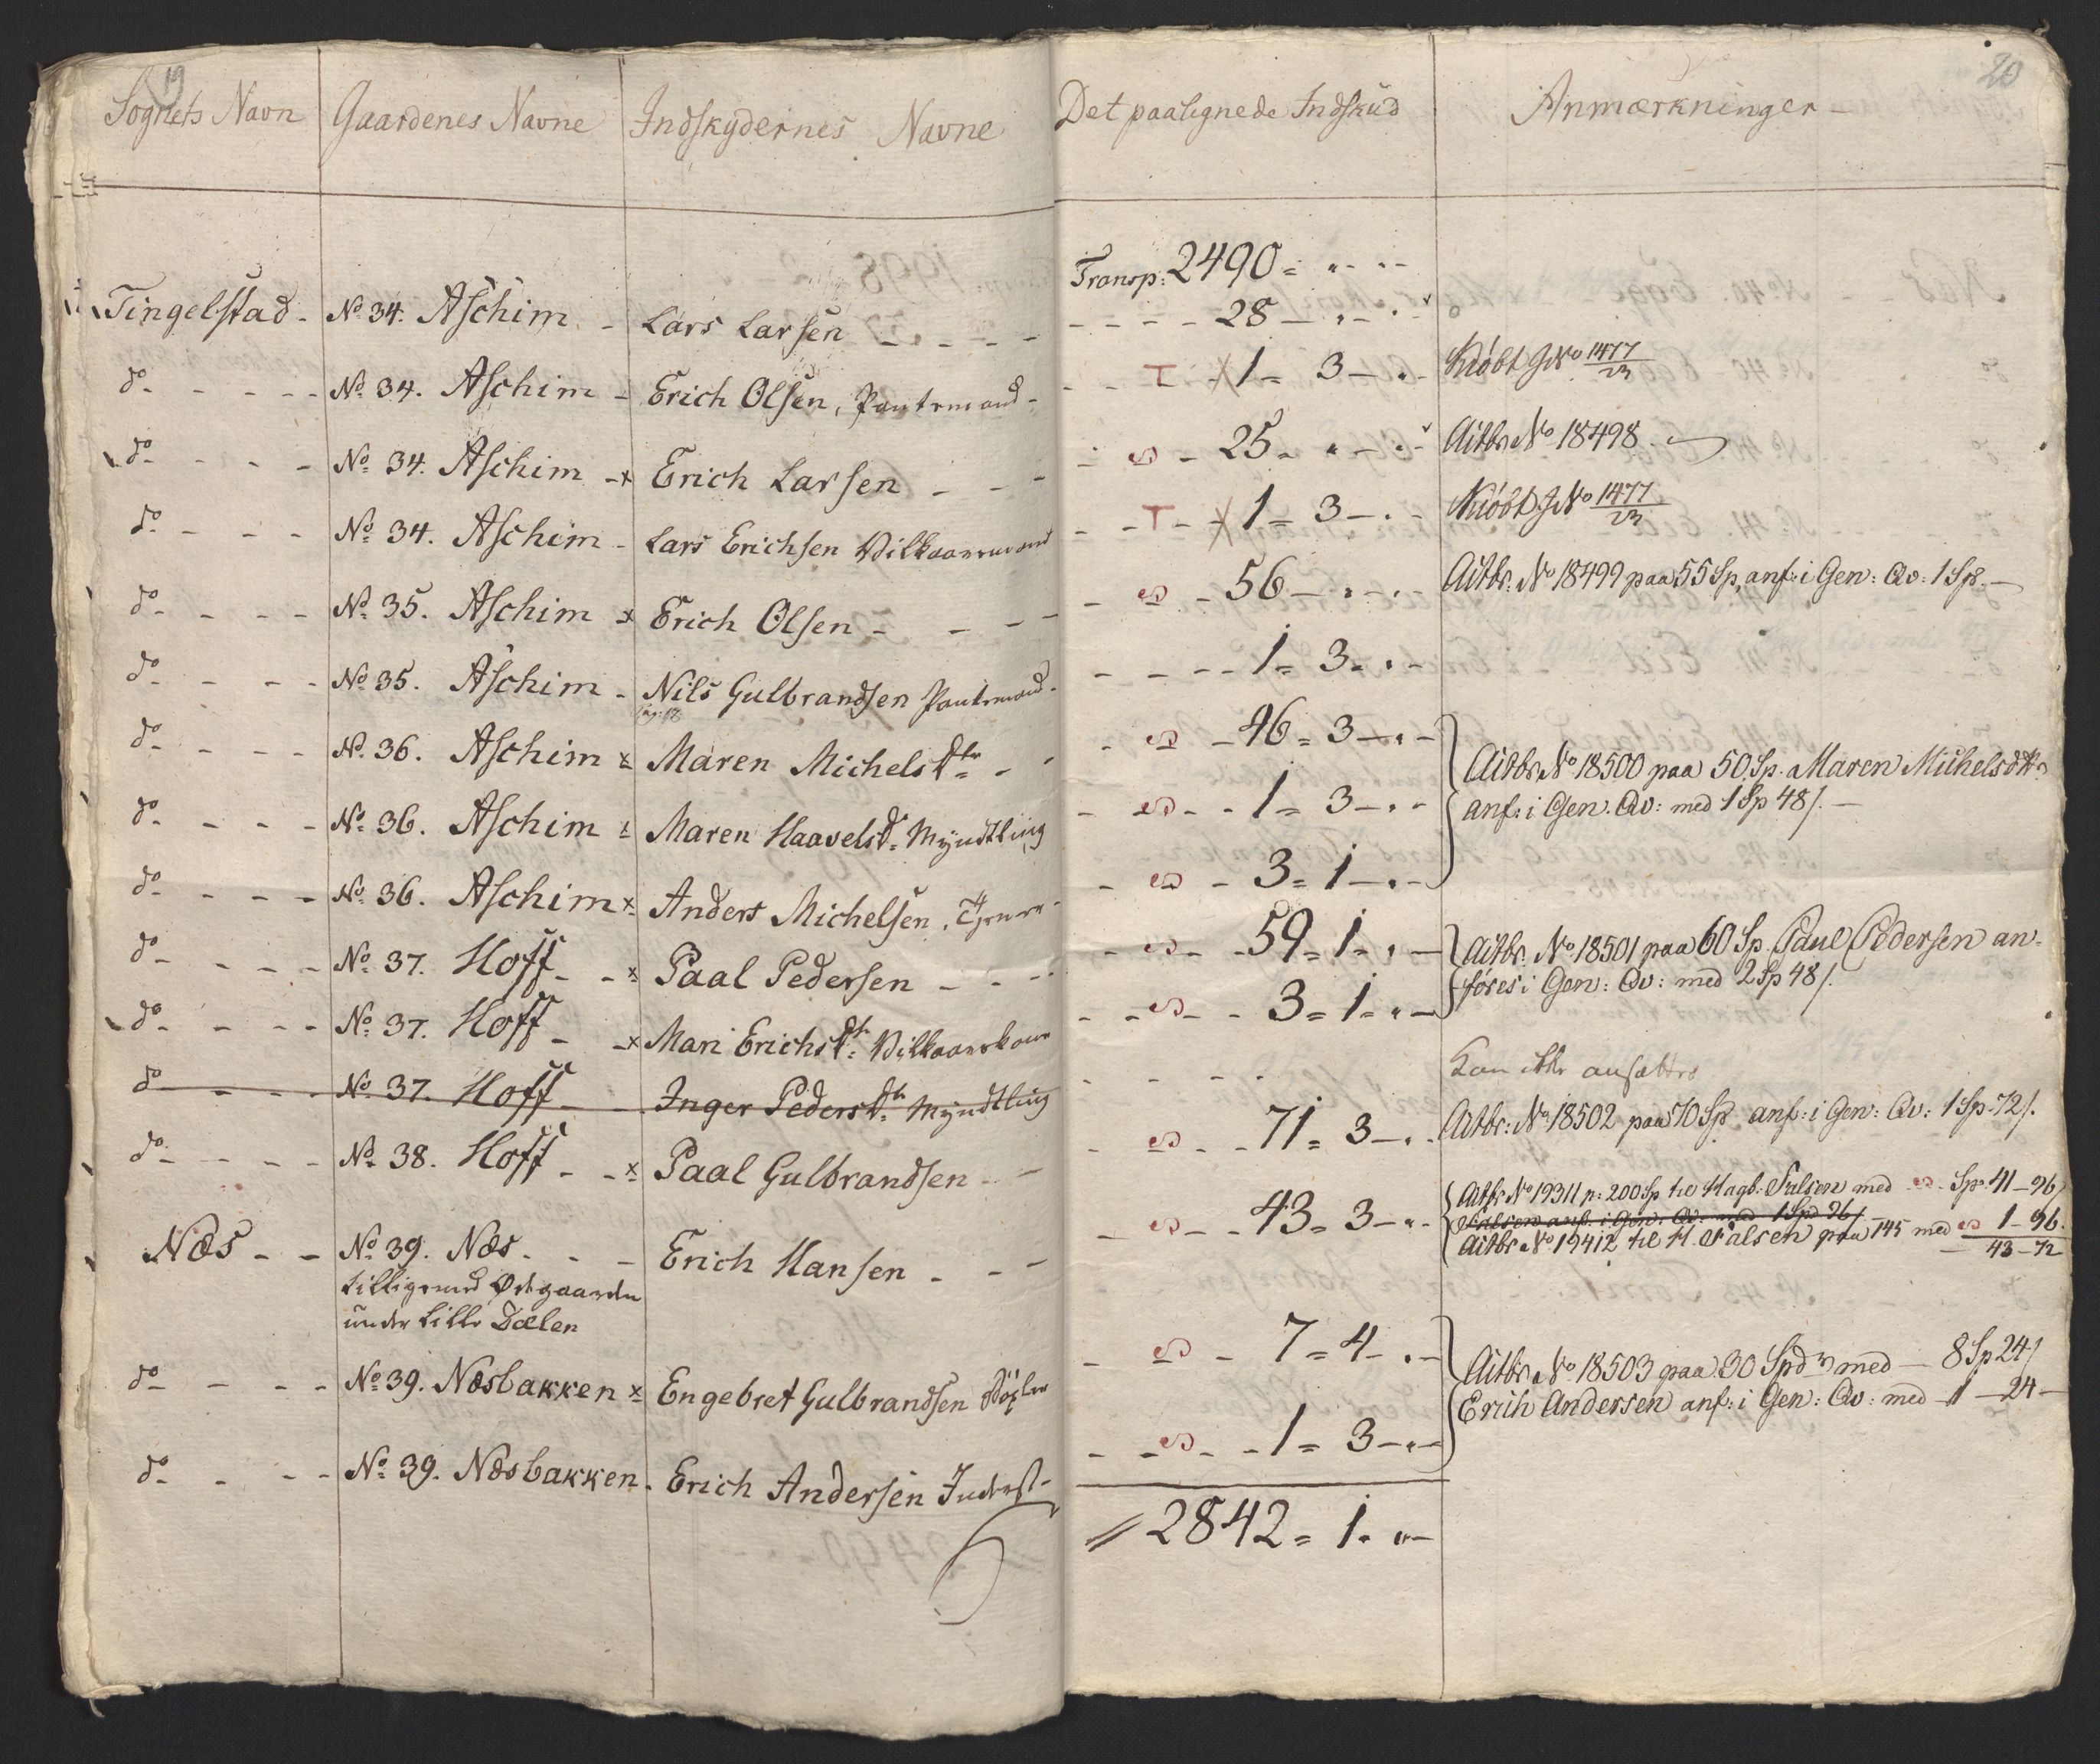 19
20
Sognets Navn Gaardenes Navne Indskydernes Navne Det paalignede Indskud Anmærkninger -
Transp: 2490 = " - " -
Tingelstad - No 34. Aschim - Lars Larsen - - - - 28 - " - " -
do - - - - No 34. Aschim - Erich Olsen, Pantemand - - - T - X 1 = 3 - " - Kiøbt J No 1477/23
do - - - No 34. Aschim - x Erich Larsen - - - - 25 - " - " - Aitbr. No 18498.
do - - - No 34. Aschim - Lars Erichsen Vilkaarsmand - - T - X 1 = 3 - " - Kiøbt J No 1477/23
do - - - - No 35. Aschim x Erich Olsen - - - - 56 - " - " - Aitbr. No 18499 paa 55 Sp, anf: i Gen: Qv: 1 Sp. -
do - - - - No 35. Aschim - Nils Gulbrandsen Pantemand - - - - - 1 = 3 - " -
do - - - - No 36. Aschim x Maren Michelsdtr - - - 46 = 3 - " - Aitbr. No 18500 paa 50 Sp. Maren Michelsdtr
do - - - - No 36. Aschim x Maren Haavelsdr Myndtling - - - 1 = 3 - " - anf: i Gen. Qv: med 1 Sp 48 /. -
do - - - - No 36. Aschim x Anders Michelsen, - 3 = 1 - " -
do - - - - No 37. Hoff - - x Paal Pedersen - - - - 59 = 1 - " - Aitbr. No 18501 paa 60 Sp. Paul Pedersen an-
do - - - - No 37. Hoff - - x Mari Erichsdtr Vilkaarskone - - - 3 = 1 - " - føres i Gen: Qv: med 2 Sp 48 /.
do - - - No 37. Hoff - - Inger Pedersdtr Myndtling - - - - Kan ikke ansættes
do - - - - No 38. Hoff - - x Paal Gulbrandsen - - - - 71 = 3 - " - Aitbr: No 18502 paa 70 Sp. anf: i Gen: Qv: 1 Sp. 72 /.
Næs - - No 39. Næs - - - Erich Hansen - - - - - 43 = 3 - " - Aitbr No 19311 p: 200 Sp til Hagb: Falsen med Sp. 41 - 96 /
Falsen anf: i Gen: Qv: med 1 Spd 96 /. -
tilligemed Ødegaarden Aitbr No 19412 til H. Falsen paa 145 med 1 - 96.
under Lille Dælen 43 - 72
do - - - - No 39. Næsbakken x Engebret Gulbrandsen - - 7 = 4 - " - Aitbr. No 18503 paa 30 Spd med - 8 Sp 24 /
do - - - - No 39. Næsbakken - Erich Andersen Inderst - - - - 1 = 3 - " - Erich Andersen anf: i Gen: Qv: med 1 - 24 -
2842 = 1 - " -